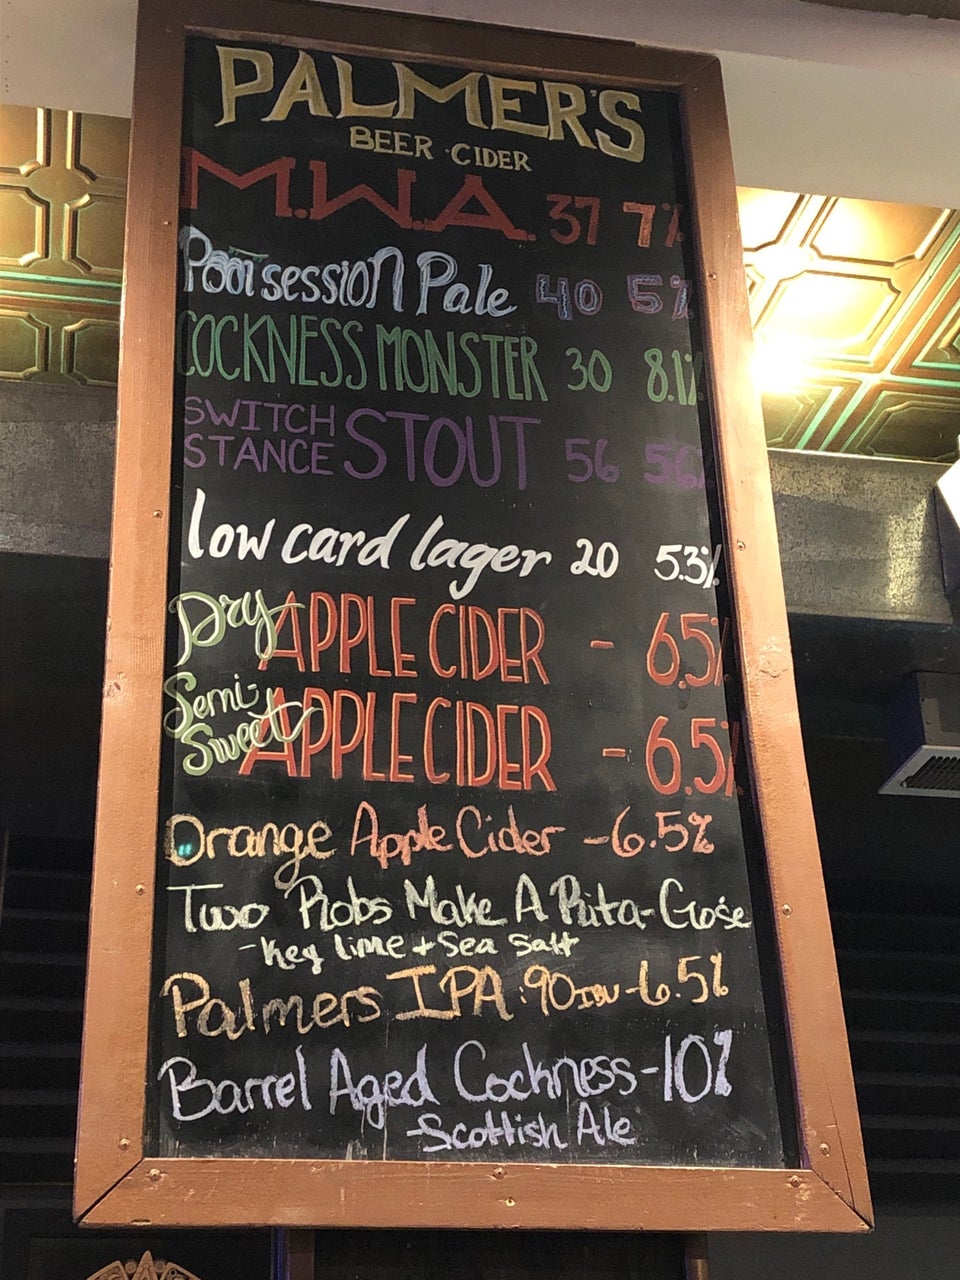 PALMER'S
BEER · CIDER
M.W.A. 37 7%
Pool session Pale 40 5%
COCKNESS MONSTER 30 8.1%
SWITCH STANCE STOUT 56 56%
low card lager 20 5.3%
Dry APPLE CIDER - 6.5%
Semi-Sweet APPLE CIDER - 6.5%
Orange Apple Cider - 6.5%
Two Robs Make A Rita-Gose
- Key lime + Sea Salt
Palmers IPA : 90 IBU - 6.5%
Barrel Aged Cockness - 10%
- Scottish Ale